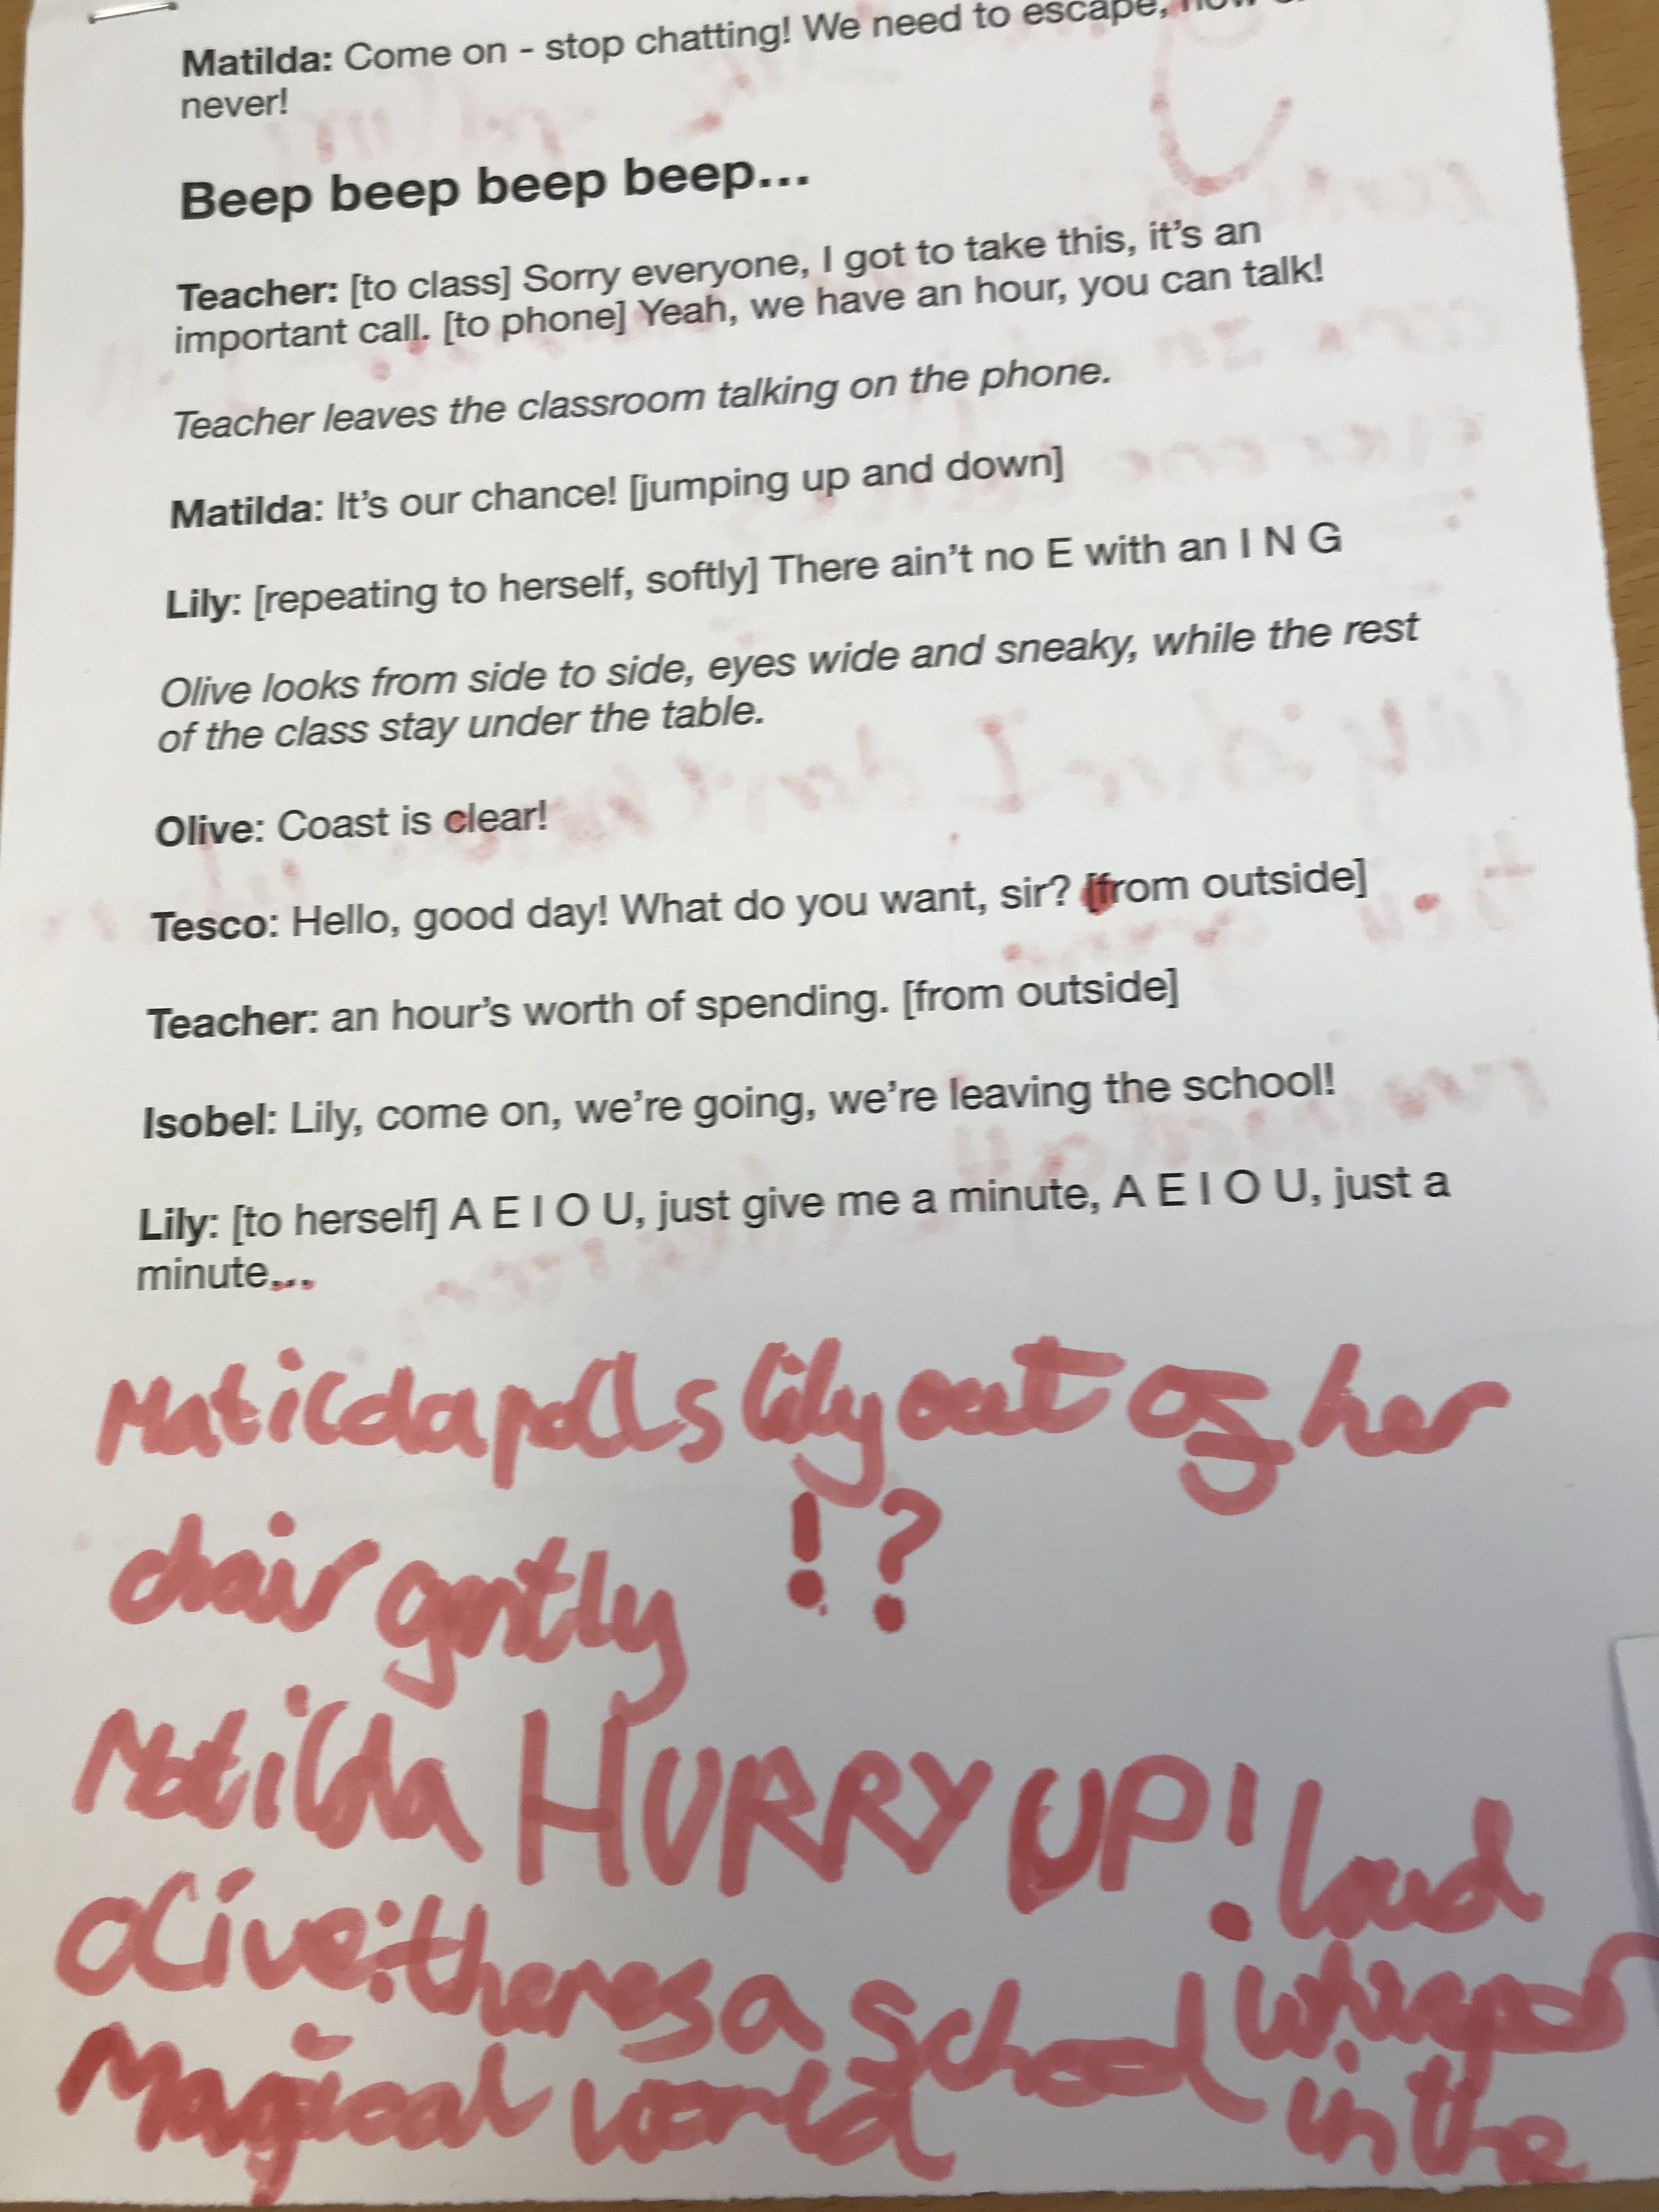 Matilda: Come on - stop chatting! We need to escape, now
never!
Beep beep beep beep...
Teacher: [to class] Sorry everyone, I got to take this, it's an
important call. [to phone] Yeah, we have an hour, you can talk!
Teacher leaves the classroom talking on the phone.
Matilda: It's our chance! [jumping up and down]
Lily: [repeating to herself, softly] There ain't no E with an I N G
Olive looks from side to side, eyes wide and sneaky, while the rest
of the class stay under the table.
Olive: Coast is clear!
Tesco: Hello, good day! What do you want, sir? [from outside]
Teacher: an hour's worth of spending. [from outside]
Isobel: Lily, come on, we're going, we're leaving the school!
Lily: [to herself] A E I O U, just give me a minute, A E I O U, just a
minute...
Matilda pulls lily out of her
chair gently !?
Matilda HURRY UP! loud
Olive: theres a school whisper
Magical world in the